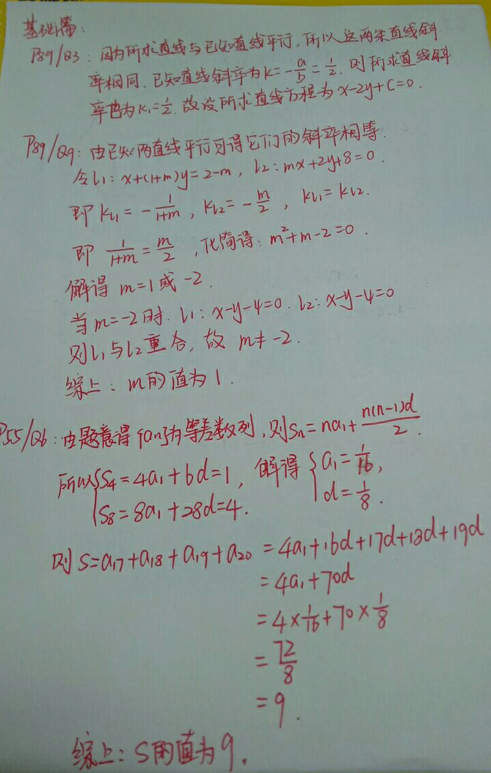 基础篇:
P89/Q3: 因为所求直线与已知直线平行, 所以这两条直线斜
率相同. 已知直线斜率为k=-a/b=1/2. 则所求直线斜
率也为k₁=1/2. 故设所求直线方程为x-2y+C=0.
P89/Q9: 由已知两直线平行可得它们的斜率相等.
令l₁: x+(1+m)y=2-m, l₂: mx+2y+8=0.
即 kl₁=-1/(1+m), kl₂=-m/2, kl₁=kl₂.
即 1/(1+m)=m/2, 化简得: m²+m-2=0.
解得 m=1或-2.
当m=-2时. l₁: x-y-4=0. l₂: x-y-4=0
则l₁与l₂重合, 故 m≠-2.
综上: m的值为1.
P55/Q6: 由题意得{an}为等差数列, 则Sn=na₁+n(n-1)d/2.
所以{S₄=4a₁+6d=1, 解得{a₁=1/16,
S₈=8a₁+28d=4. d=1/8.
则S=a₁₇+a₁₈+a₁₉+a₂₀=4a₁+16d+17d+18d+19d
=4a₁+70d
=4×1/16+70×1/8
=72/8
=9.
综上: S的值为9.